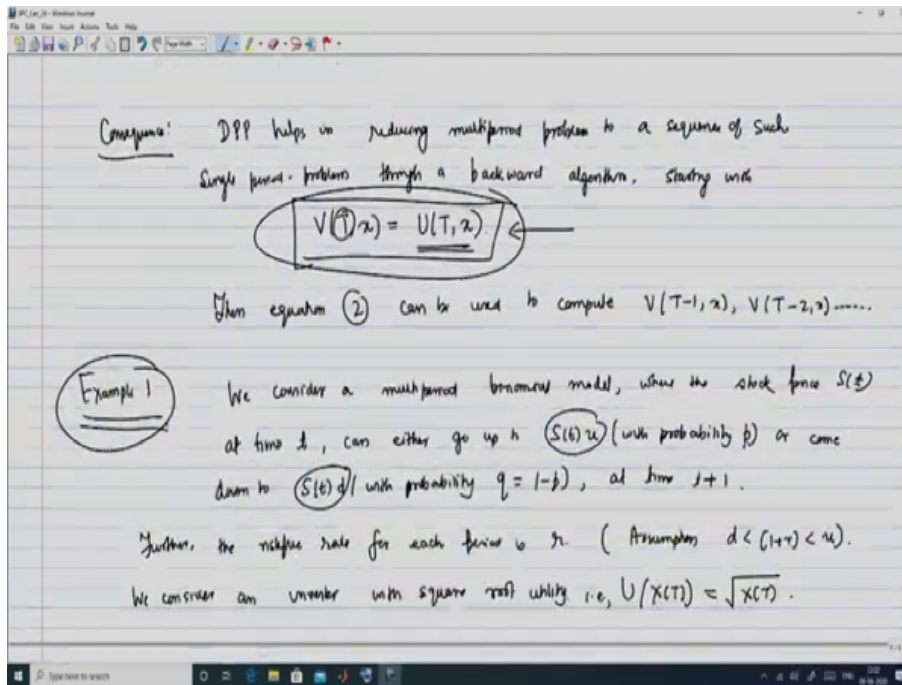 File Edit View Insert Actions Tools Help
Page Width
Consequence: DPP helps in reducing multiperiod problem to a sequence of such
single period problem through a backward algorithm, starting with
V(T,x) = U(T,x).
Then equation (2) can be used to compute V(T-1,x), V(T-2,x)......
Example 1 We consider a multiperiod binomial model, where the stock price S(t)
at time t, can either go up to S(t)u (with probability p) or come
down to S(t)d (with probability q = 1-p), at time t+1.
Further, the riskfree rate for each period is r. (Assumption d < (1+r) < u).
We consider an investor with square root utility i.e, U(X(T)) = √X(T).
Type here to search